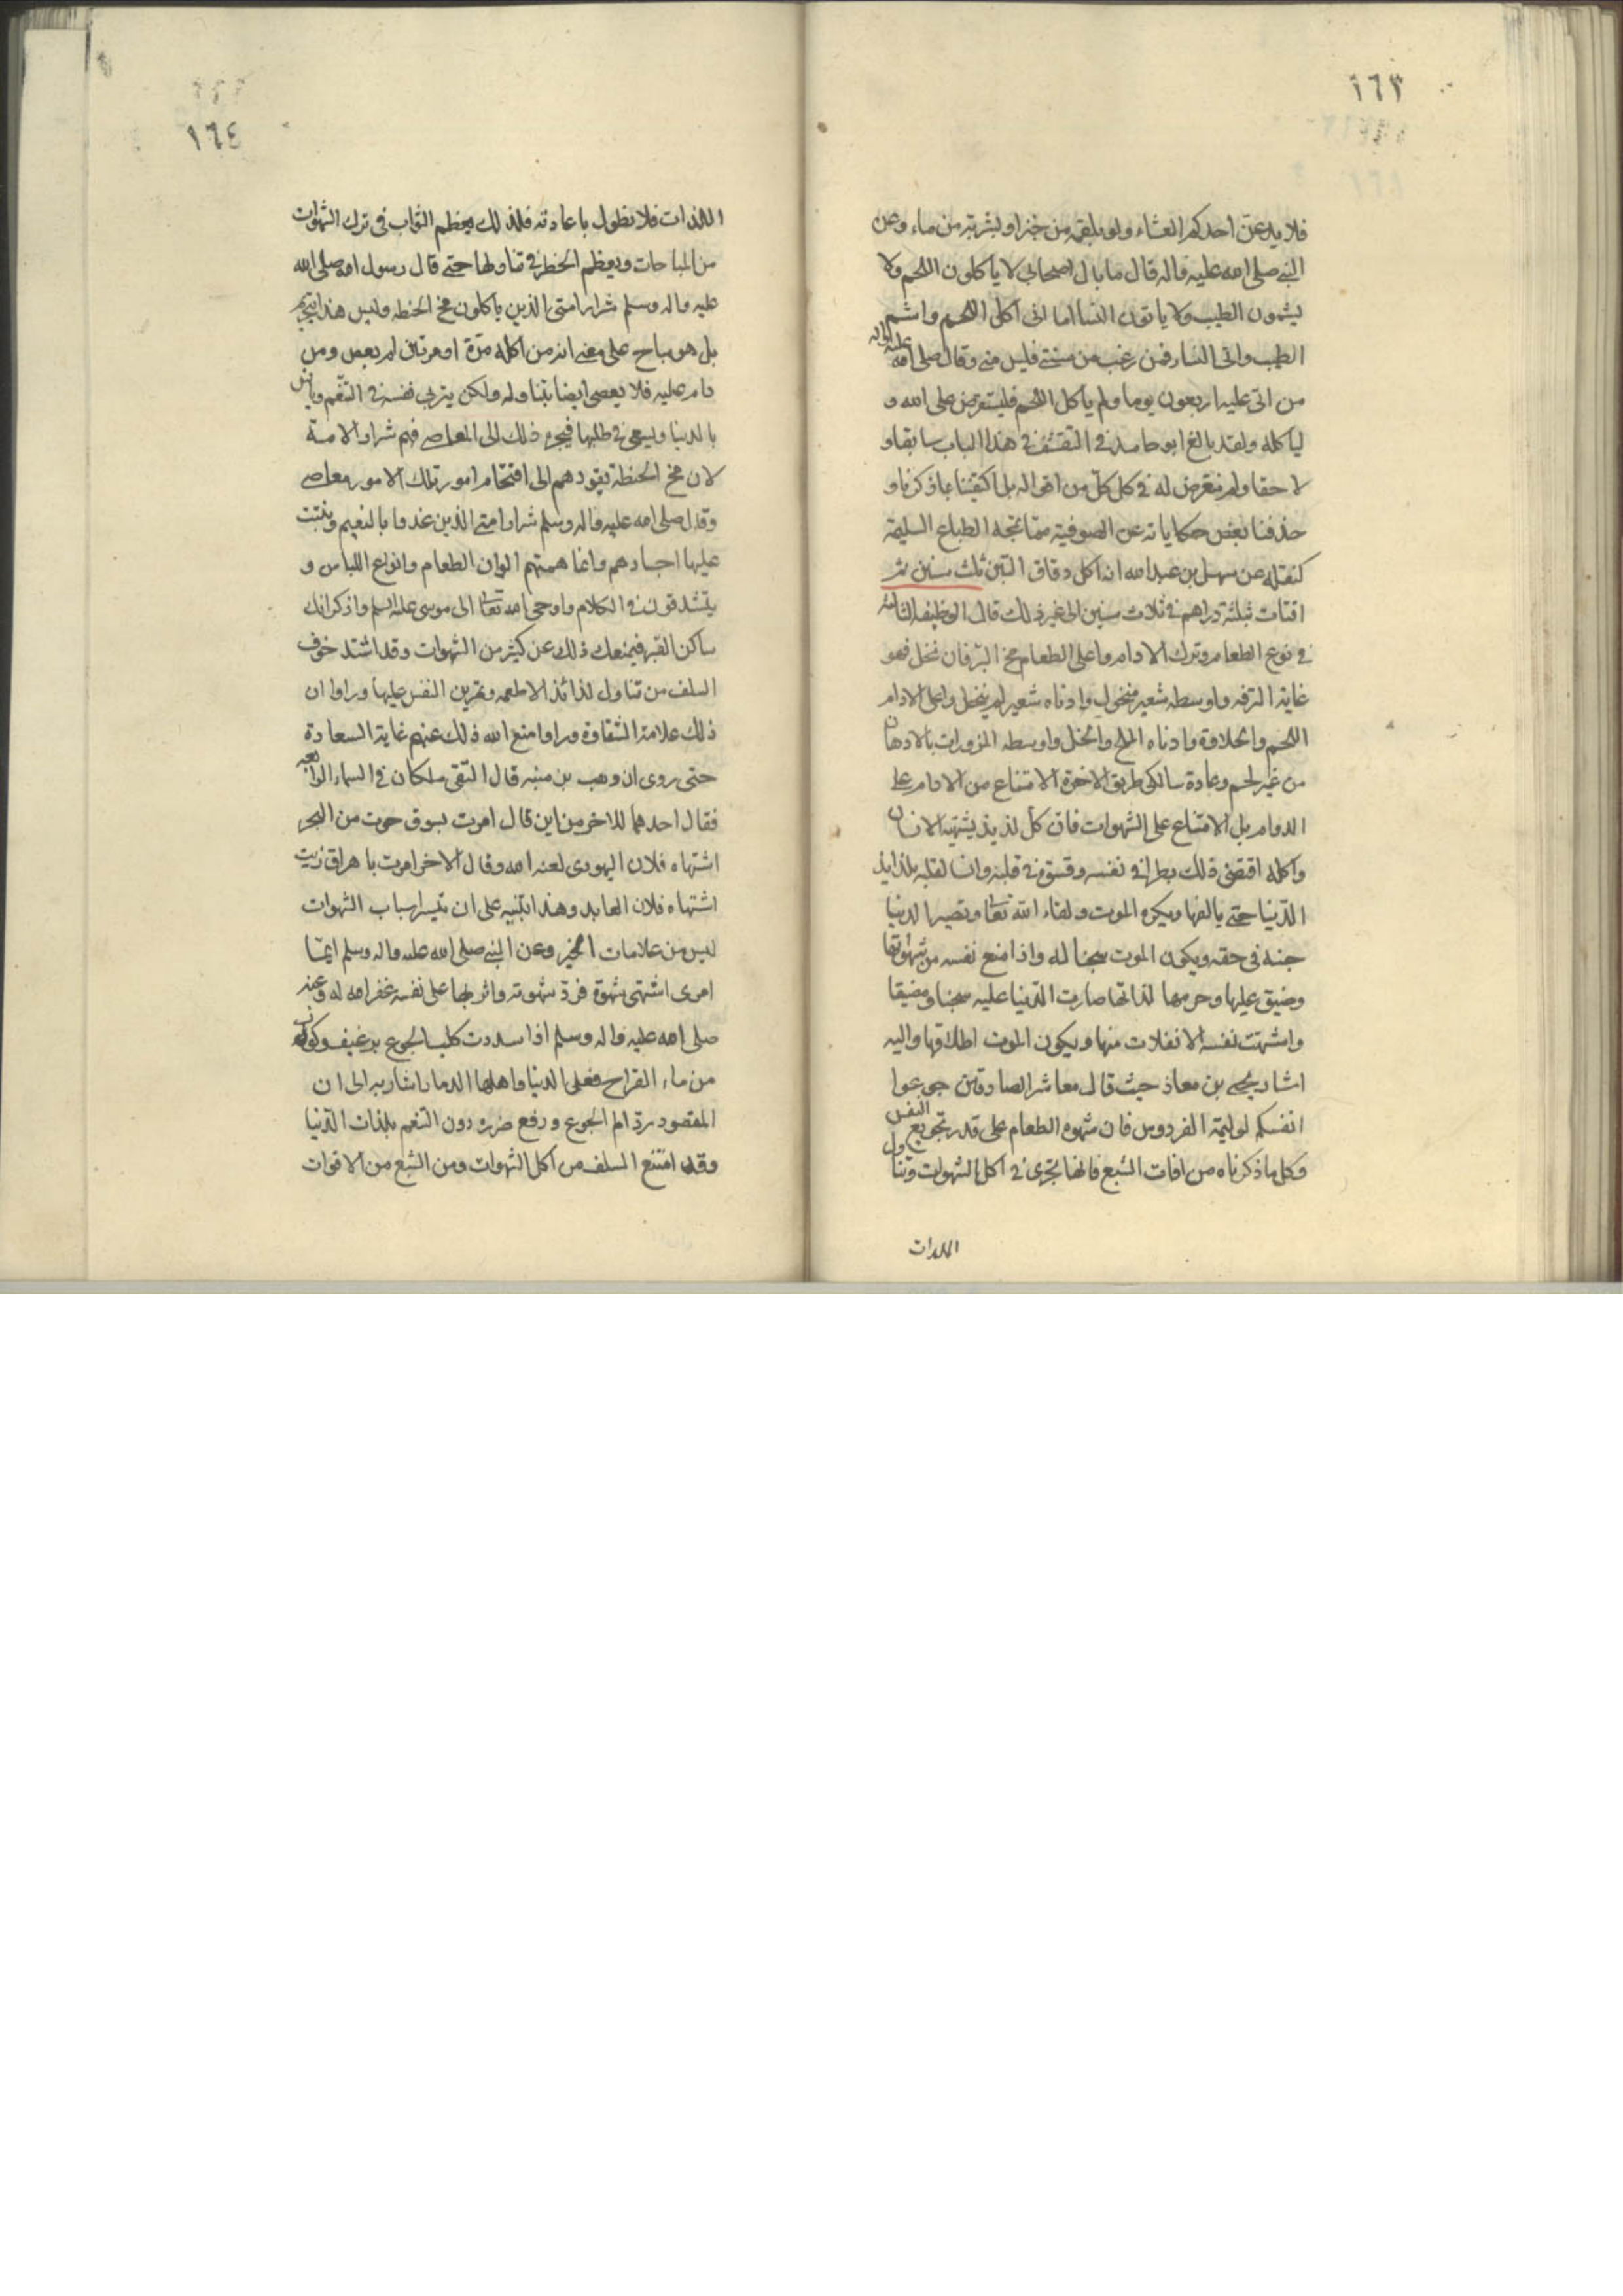 ١٦٣
فلا يدعن احدكم العشاء ولو بلقمة من خبز او بشربة من ماء وعن
النبي صلى الله عليه واله قال ما بال اصحابي لا ياكلون اللحم ولا
يشمون الطيب ولا ياتون النسا اما انى آكل اللحم واشم
الطيب واتى النساء فمن رغب من سنتي فليس مني وقال صلى الله عليه واله
من اتى عليه اربعون يوما ولم ياكل اللحم فليستقرض على الله و
لياكله ولقد بالغ ابو حامد في التقشف في هذا الباب سابقا و
لاحقا ولم نتعرض له في كل من اقواله بل اكتفينا بما ذكرنا و
حذفنا بعض حكاياته عن الصوفية مما تمجه الطباع السليمة
كنقله عن سهل بن عبد الله انه اكل دقاق التبن ثلث سنين ثم
اقتات بثلثة دراهم في ثلاث سنين الى غير ذلك قال الوظيفه الثالثه
في نوع الطعام وترك الادام واعلى الطعام مخ البر فان نخل فهو
غاية الترفه واوسطه شعير منخول وادناه شعير لم ينخل واعلى الادام
اللحم والحلاوة وادناه الملح والخل واوسطه المزورات بالادهان
من غير لحم وعادة سالكى طريق الاخرة الامتناع من الادام على
الدوام بل الامتناع على الشهوات فان كل لذيذ يشتهيه الانسان
واكله اقتضى ذلك بطرا في نفسه وقسوة في قلبه وانسا لقلبه بلذايذ
الدنيا حتى يالفها ويكره الموت ولقاء الله تعا وتصير الدنيا
جنة في حقه ويكون الموت سجنا له واذا منع نفسه من شهواتها
وضيق عليها وحرمها لذاتها صارت الدنيا عليه سجنا ومضيقا
واشتهت نفسه الانفلات منها ويكون الموت اطلاقها واليه
اشار يحيى بن معاذ حيث قال معاشر الصادقين جوعوا
انفسكم لوليمة الفردوس فان شهوه الطعام على قدر تجويع النفس
فكل ما ذكرناه من افات الشبع فانها تجرى في اكل الشهوات وتناول
اللذات
١٦٤
اللذات فلا نطول باعادته فلذلك يعظم الثواب فى ترك الشهوات
من المباحات ويعظم الخطر في تناولها حتى قال رسول الله صلى الله
عليه واله وسلم شرار امتى الذين ياكلون مخ الحنطه وليس هذا بتحريم
بل هو مباح على معنى انه من اكله مرة او مرتين لم يعص ومن
دام عليه فلا يعصى ايضا بتناوله ولكن يتربى نفسه في التنعم ويانس
بالدنيا ويسعى في طلبها فيجره ذلك الى المعاصي فهم شرار الامة
لان مخ الحنطة يقودهم الى اقتحام امور تلك الامور معاصي
وقال صلى الله عليه واله وسلم شرار امتي الذين غذوا بالنعيم ونبتت
عليها اجسادهم وانما همتهم الوان الطعام وانواع اللباس و
يتشدقون في الكلام واوحى الله تعا الى موسى عليه السلم واذكر انك
ساكن القبر فيمنعك ذلك عن كثير من الشهوات وقد اشتد خوف
السلف من تناول لذائذ الاطعمه وتمرين النفس عليها وراوا ان
ذلك علامة الشقاوة وراوا منع الله ذلك عنهم غاية السعادة
حتى روى ان وهب بن منبه قال التقى ملكان في السماء الرابعه
فقال احدهما للاخر من اين قال امرت بسوق حوت من البحر
اشتهاه فلان اليهودى لعنه الله وقال الاخر امرت باهراق زيت
اشتهاه فلان العابد وهذا تنبيه على ان تيسر اسباب الشهوات
ليس من علامات الخير وعن النبي صلى الله عليه واله وسلم ايما
امرى اشتهى شهوة فرد شهوته واثر بها على نفسه غفر الله له وعنه
صلى الله عليه واله وسلم اذا سددت كلب الجوع برغيف وكوز
من ماء القراح فعلى الدنيا واهلها الدمار اشار به الى ان
المقصود رد الم الجوع ودفع ضرره دون التنعم بلذات الدنيا
وقد امتنع السلف من اكل الشهوات ومن الشبع من الاقوات